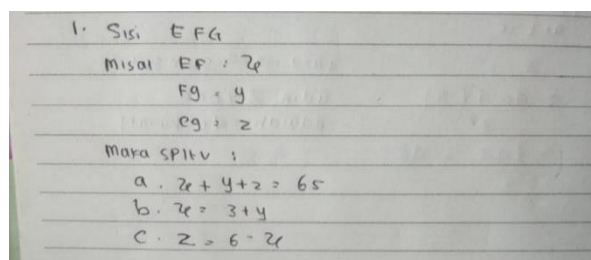 1. Sisi EFG
Misal EF : x
Fg = y
eg = z
Maka SPLTV :
a. x + y + z = 65
b. x = 3 + y
c. z = 6 - x